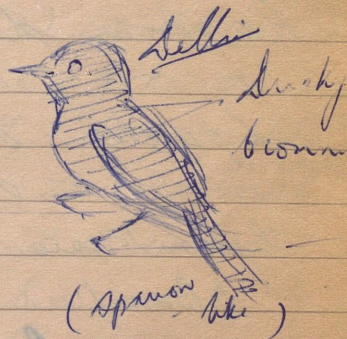 Delhi
Dusky
brown
(sparrow like)